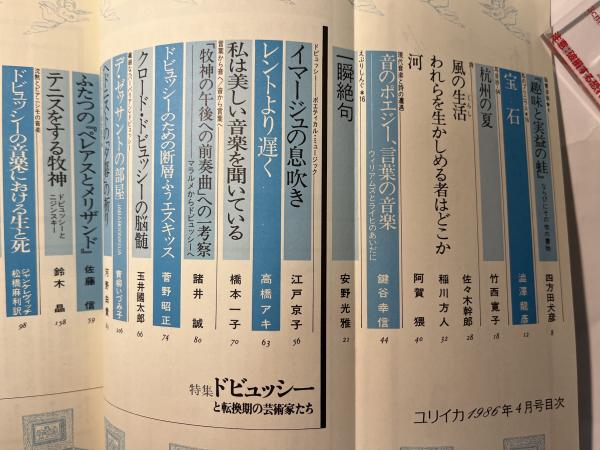 『趣味と実益の蛙』 ならびにその他の書物 四方田犬彦 8
宝石 澁澤龍彦 12
杭州の夏 竹西寛子 18
風の生活 佐々木幹郎 28
われらを生かしめる者はどこか 稲川方人 32
河 阿賀猥 40
現代音楽と詩の遭遇
音のポエジー、言葉の音楽 ウィリアムズとライヒのあいだに 鍵谷幸信 44
えぷりしんぐ*16
一瞬絶句 安野光雅 21
特集 ドビュッシー
と転換期の芸術家たち
ドビュッシー ポエティカル・ミュージック
イマージュの息吹き 江戸京子 56
レントより遅く 高橋アキ 63
私は美しい音楽を聞いている 橋本一子 70
言葉から音へ/音から言葉へ
『牧神の午後への前奏曲』への一考察 マラルメからドビュッシーへ 諸井誠 80
ドビュッシーのための断層ふうエスキッス 菅野昭正 74
クロード・ドビュッシーの脳髄 玉井國太郎 66
デ・ゼッサントの部屋 青柳いづみ子 106
ふたつの『ペレアスとメリザンド』 佐藤信 59
テニスをする牧神 ドビュッシーとニジンスキー 鈴木晶 158
ドビュッシーの音楽における生と死 ジャンケレヴィッチ 松橋麻利訳 98
ユリイカ 1986年4月号目次